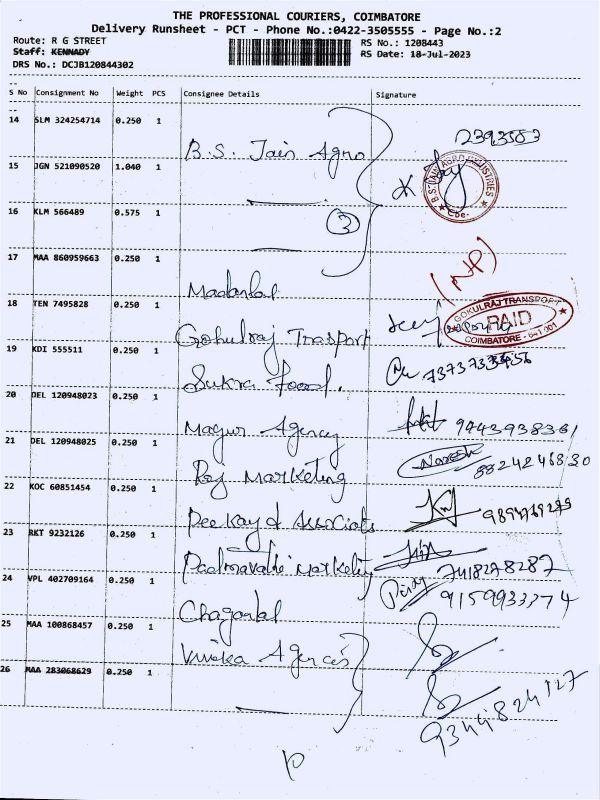 THE PROFESSIONAL COURIERS, COIMBATORE
Delivery Runsheet - PCT - Phone No.:0422-3505555 - Page No.:2
Route: R G STREET
RS No.: 1208443
Staff: KENNADY
RS Date: 18-Jul-2023
DRS No.: DCJB120844302
S No Consignment No Weight PCS Consignee Details Signature
14 SLM 324254714 0.250 1
2393583
B.S. Jain Agro
15 JGN 521090520 1.040 1
B.S. JAIN AGRO INDUSTRIES
Cbe-
16 KLM 566489 0.575 1
3
17 MAA 860959663 0.250 1
Madanlal
18 TEN 7495828 0.250 1
Gokulraj Trasport
GOKULRAJ TRANSPORT
PAID
COIMBATORE - 641 001
19 KDI 555511 0.250 1
Sukra Food.
20 DEL 120948023 0.250 1
Mayur Agency
9443938361
21 DEL 120948025 0.250 1
Raj Marketing
Naresh
8824246830
22 KOC 60851454 0.250 1
Peekay & Associats
23 RKT 9232126 0.250 1
Padmavathi Marketing
7418278287
24 VPL 402709164 0.250 1
9159933374
Chaganlal
25 MAA 100868457 0.250 1
Viveka Agencies
26 MAA 283068629 0.250 1
9344824127